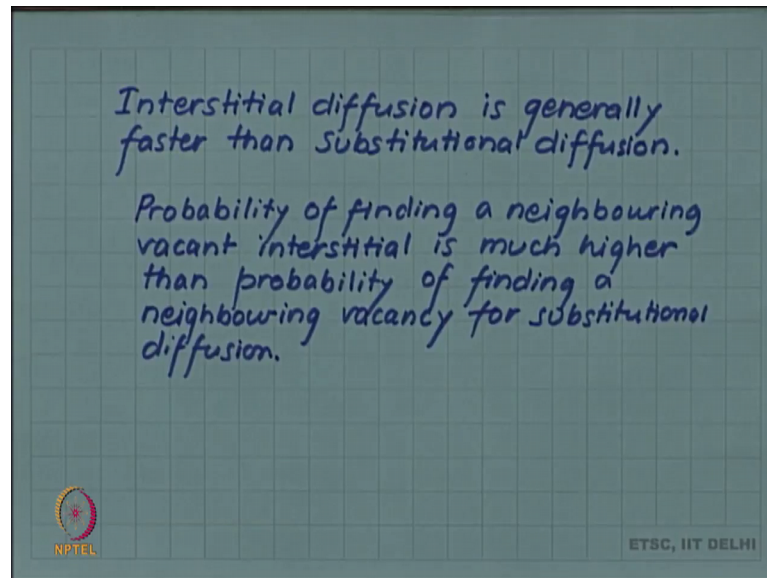 Interstitial diffusion is generally
faster than substitutional diffusion.
Probability of finding a neighbouring
vacant interstitial is much higher
than probability of finding a
neighbouring vacancy for substitutional
diffusion.
NPTEL
ETSC, IIT DELHI